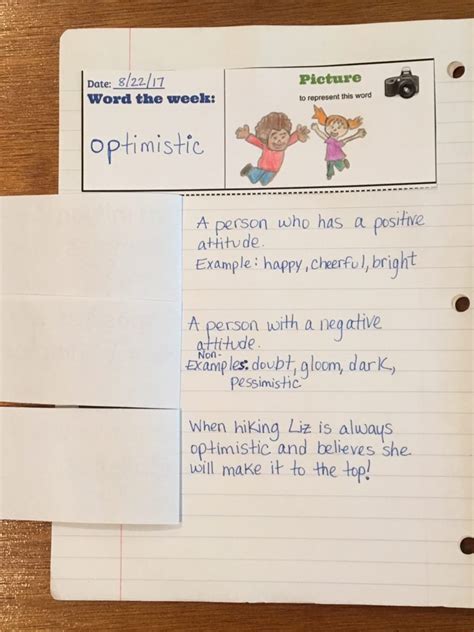 Date: 8/22/17
Word the week:
optimistic
Picture
to represent this word
A person who has a positive
attitude.
Example: happy, cheerful, bright
A person with a negative
attitude.
Non-
Examples: doubt, gloom, dark,
pessimistic
When hiking Liz is always
optimistic and believes she
will make it to the top!